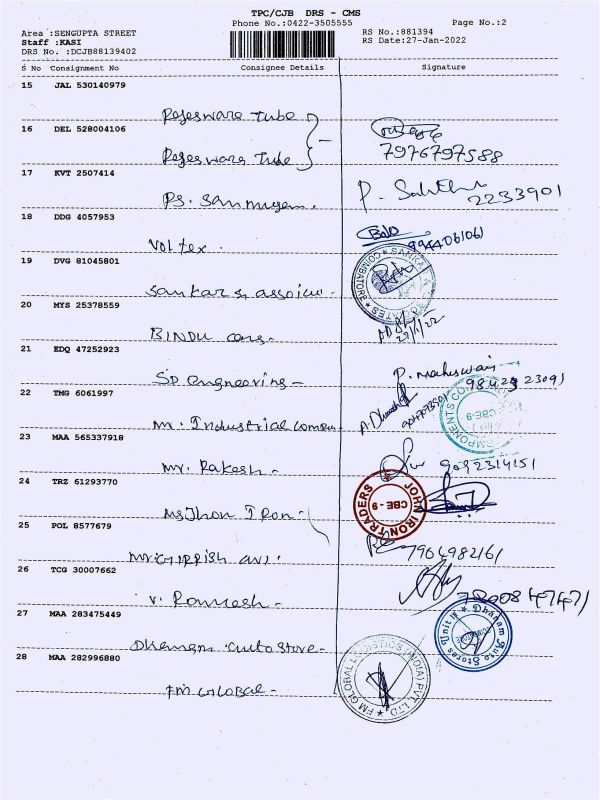 TPC/CJB DRS - CMS
Phone No.:0422-3505555 Page No.:2
Area :SENGUPTA STREET RS No.:881394
Staff :KASI RS Date:27-Jan-2022
DRS No. :DCJB88139402
S No Consignment No Consignee Details Signature
15 JAL 530140979
Rajeswara tube
16 DEL 528004106
Rajeswara tube 7976797588
17 KVT 2507414
PS. Sanmugam. 2233901
18 DDG 4057953
Voltex. 9944061061
19 DVG 81045801
Sankar &
COIMBATORE
20 MYS 25378559
BINDU cons- 27/1/22
21 EDQ 47252923
SD engneering - P. maheswari
22 TMG 6061997
Mr. Industrial
COMPONENTS CBE-9
23 MAA 565337918
Mr. Rakesh - 9092314151
24 TRZ 61293770
Ms Jhon Iron -
JOHN IRON TRADERS CBE - 9
25 POL 8577679
26 TCG 30007662
V. Ramesh -
27 MAA 283475449
Dhanam auto store -
Dhanam Auto Stores Unit II
28 MAA 282996880
FM Global -
FM GLOBAL LOGISTICS (INDIA) PVT. LTD